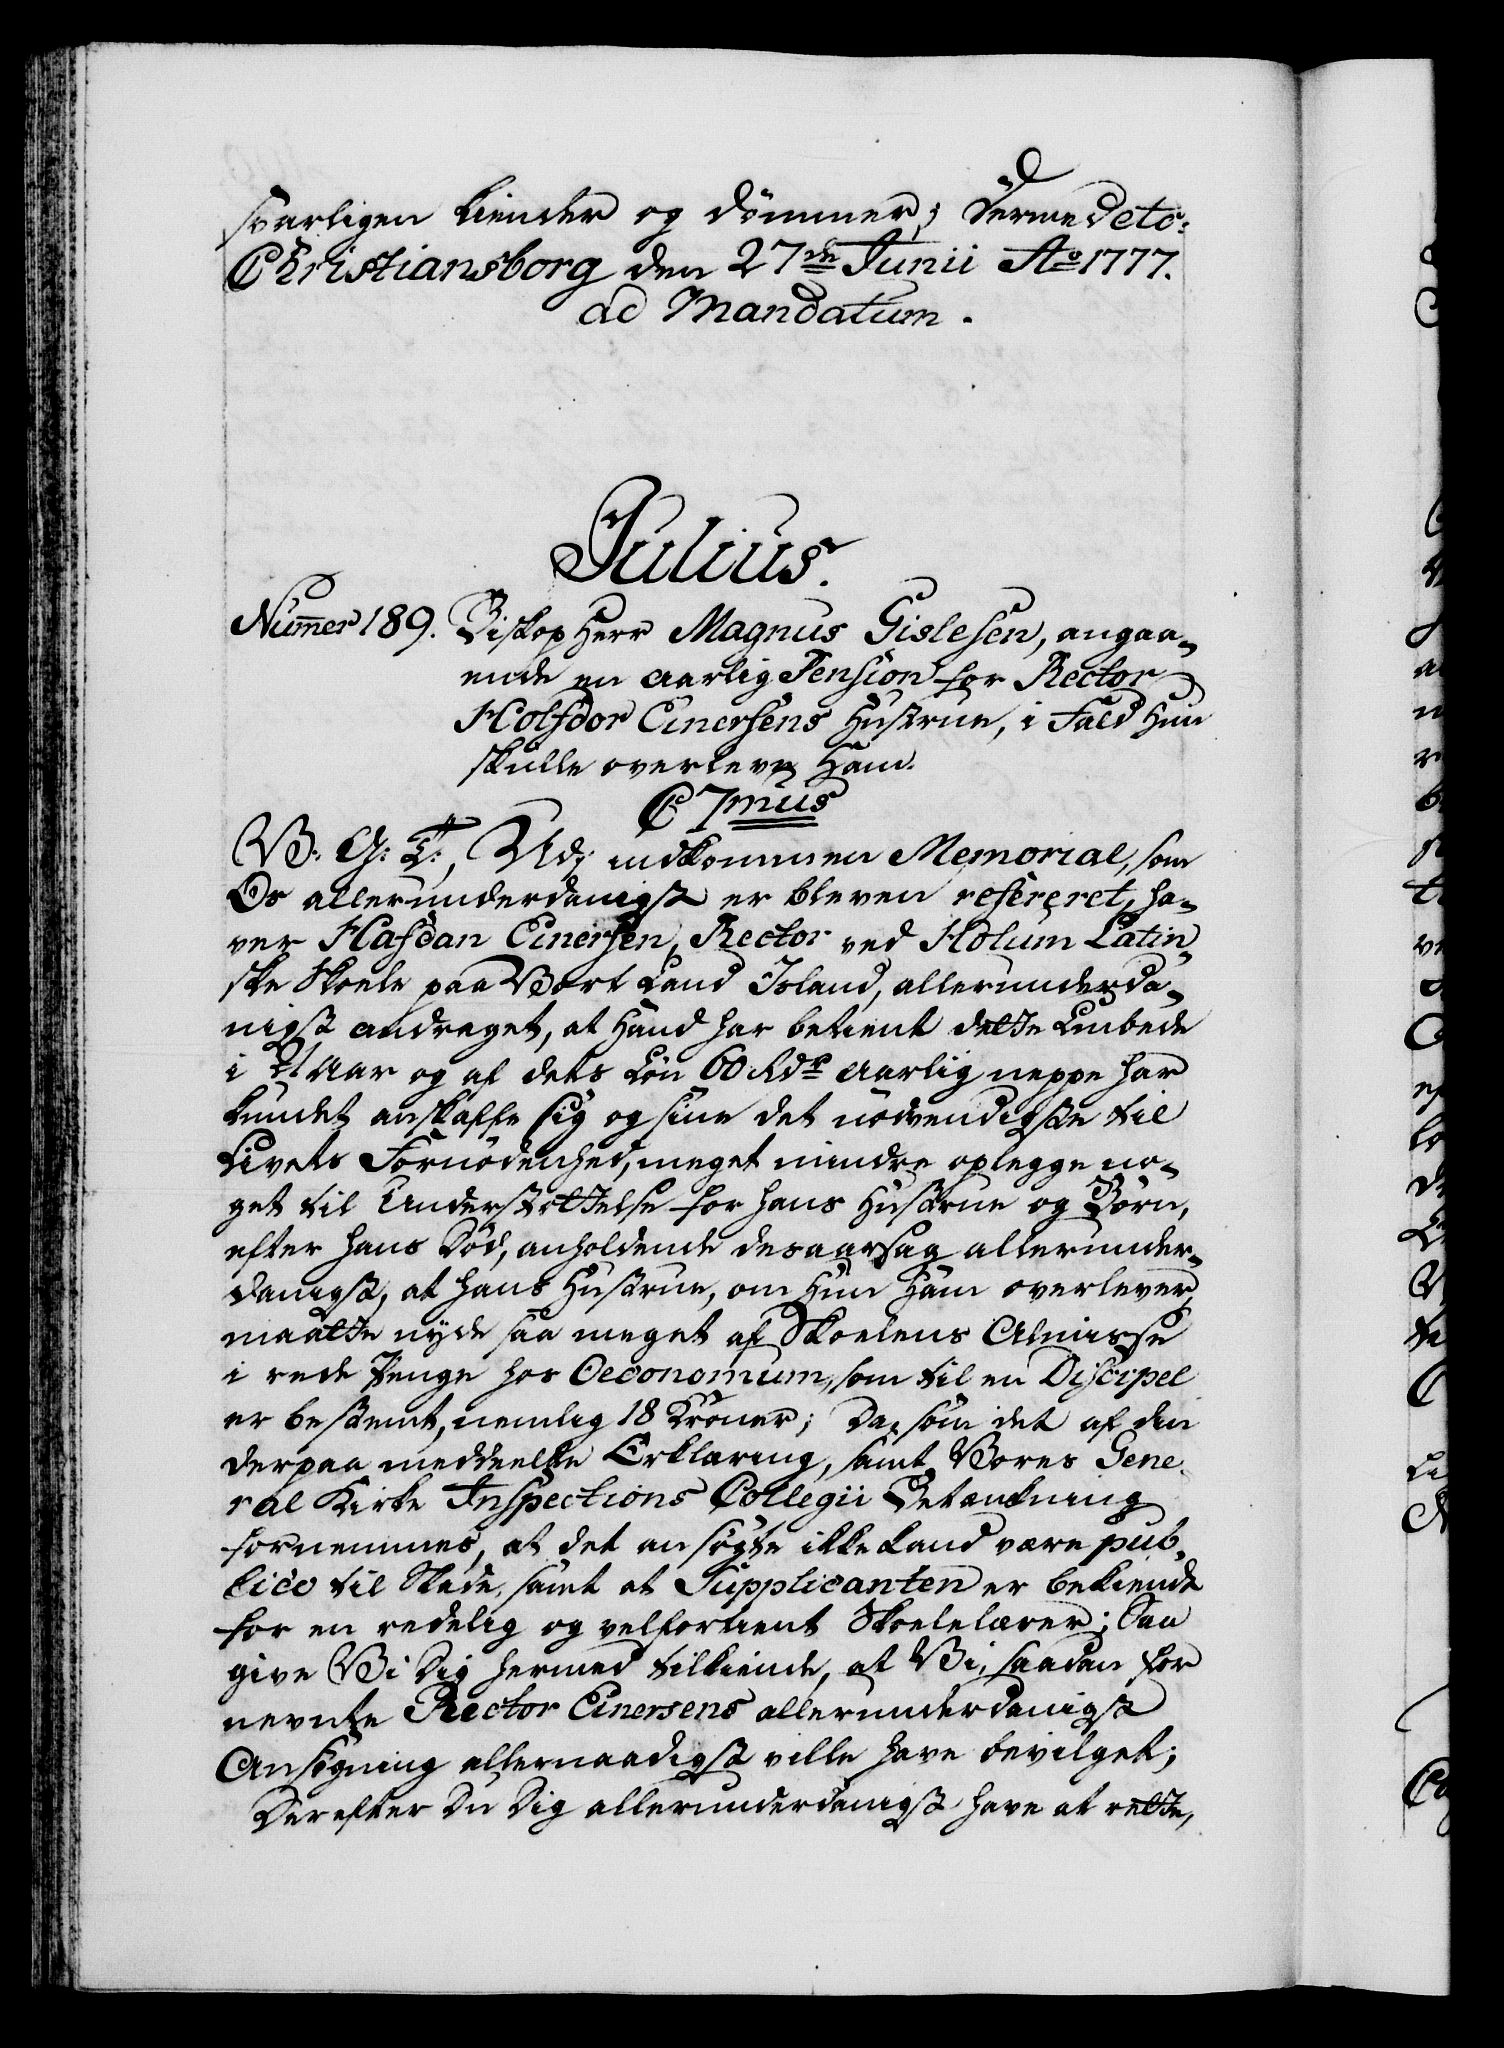 svarligen kiender og dömmer; Dermed etc:
Christiansborg den 27de Junii Ao 1777.
ad Mandatum.
Julius.
Nummer 189. Biskop Herr Magnus Gislesen, angaa-
ende en aarlig Pension for Rector
Holfdor Einersens Hustrue, i Fald hun
skulle overleve Ham.
C 7mus
V: G: T:, Udi indkommen Memorial, som
Os allerunderdanigst er bleven refereret, ha-
ver Hafdan Einersen, Rector ved Holum Latin-
ske Skoele paa Vort Land Island, allerunderda-
nigst andraget, at Hand har betient dette Embede
i Aar og af dets Lön 60 Rdr aarlig neppe har
kundet anskaffe sig og sine det nödvendigste til
Livets Fornödenhed, meget mindre oplegge no-
get til Understöttelse for hans Hustrue og Börn,
efter hans Död, anholdende desaarsag allerunder-
danigst, at hans Hustrue, om Hun Ham overlever,
maatte nyde saa meget af Skoelens Almisse
i rede Penge hos Oeconomum, som til en Discipel
er bestemt, nemlig 18 Kroner; Da, som det af den
derpaa meddeelte Erklæring, samt Vores Gene-
ral Kirke Inspections Collegii Betænkning
fornemmes, at det ansögte ikke kand være pub-
lico til Skade, samt at Supplicanten er bekiendt
for en redelig og velfortient Skoelelærer; Saa
give Vi Dig hermed tilkiende, at Vi, saadan for
nevnte Rector Einersens allerunderdanigst
Ansögning allernaadigst ville have bevilget;
Derefter Du Dig allerunderdanigst have at rette,